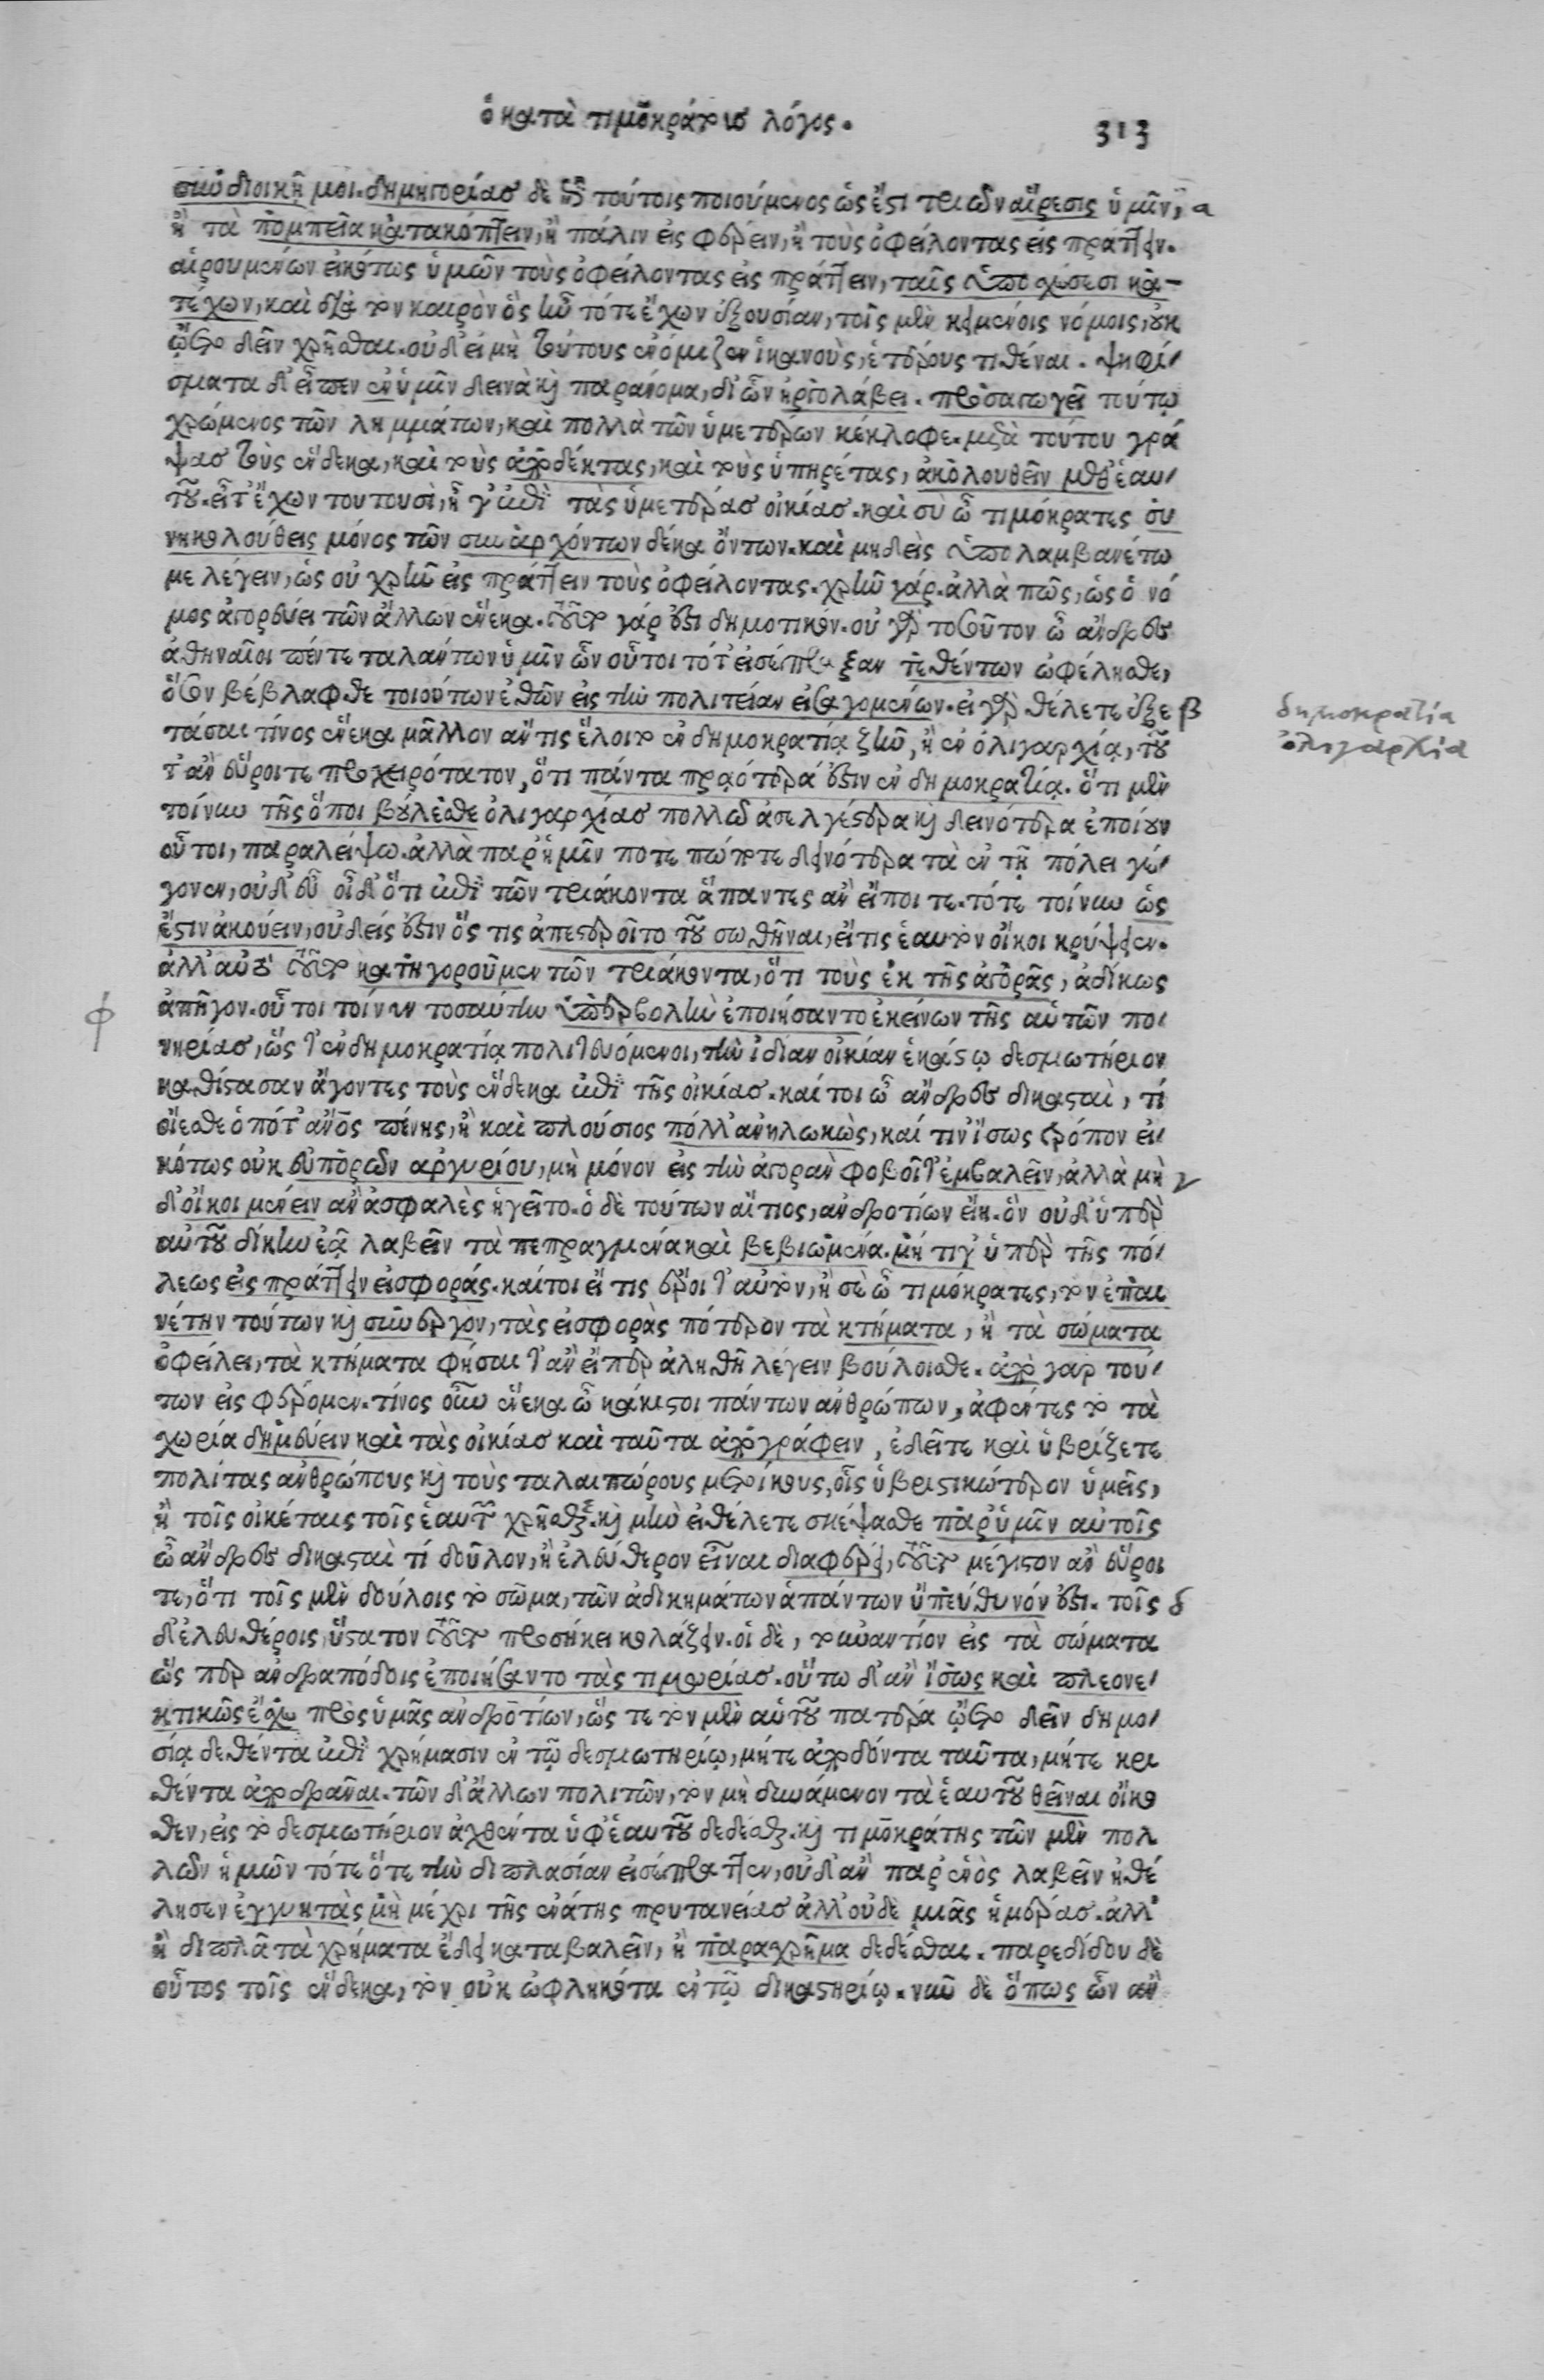 ὁ κατὰ τιμοκράτους λόγος. 313
συνδιοικῇ μοι. δημηγορίας δὲ ἐπὶ τούτοις ποιούμενος ὡς ἔστι τριῶν αἵρεσις ὑμῖν, α
ἢ τὰ πομπεῖα κατακόπτειν, ἢ πάλιν εἰσφέρειν, ἢ τοὺς ὀφείλοντας εἰσπράττειν.
αἱρουμένων εἰκότως ὑμῶν τοὺς ὀφείλοντας εἰσπράττειν, ταῖς ὑποσχέσεσι κα-
τέχων, καὶ διὰ τὸν καιρὸν ὃς ἦν τότε ἔχων ἐξουσίαν, τοῖς μὲν κειμένοις νόμοις, οὐκ
ᾤετο δεῖν χρῆσθαι. οὐδ' εἰ μὴ τούτους ἐνόμιζεν ἱκανοὺς, ἑτέρους τιθέναι. ψηφί
σματα δ' εἶπεν ἐν ὑμῖν δεινὰ καὶ παράνομα, δι' ὧν ἠργολάβει. προσαγωγεῖ τούτῳ
χρώμενος τῶν λημμάτων, καὶ πολλὰ τῶν ὑμετέρων κέκλοφε. μετὰ τούτου γρά
ψας τοὺς ἕνδεκα, καὶ τοὺς ἀποδέκτας, καὶ τοὺς ὑπηρέτας, ἀκολουθεῖν μεθ' ἑαυ
τοῦ. εἶτ' ἔχων τουτουσὶ, ᾖγ' ἐπὶ τὰς ὑμετέρας οἰκίας. καὶ σὺ ὦ τιμόκρατες συ
νηκολούθεις μόνος τῶν συναρχόντων δέκα ὄντων. καὶ μηδεὶς ὑπολαμβανέτω
με λέγειν, ὡς οὐ χρῆν εἰσπράττειν τοὺς ὀφείλοντας. χρῆν γάρ. ἀλλὰ πῶς, ὡς ὁ νό
μος ἀγορεύει τῶν ἄλλων ἕνεκα. τοῦτο γάρ ἐστι δημοτικόν. οὐ γὰρ τοσοῦτον ὦ ἄνδρες
ἀθηναῖοι πέντε ταλάντων ὑμῖν ὧν οὗτοι τότ' εἰσέπραξαν τεθέντων ὠφέλησθε,
ὅσον βέβλαφθε τοιούτων ἐθῶν εἰς τὴν πολιτείαν εἰσαγομένων. εἰ γὰρ θέλετε ἐξε β
τάσαι τίνος ἕνεκα μᾶλλον ἄν τις ἕλοιτο ἐν δημοκρατίᾳ ζῆν, ἢ ἐν ὀλιγαρχίᾳ, τοῦ
τ' ἂν εὕροιτε προχειρότατον, ὅτι πάντα πραότερά ἐστιν ἐν δημοκρατίᾳ. ὅτι μὲν
τοίνυν τῆς ὅποι βούλεσθε ὀλιγαρχίας πολλῷ ἀσελγέστερα καὶ δεινότερα ἐποίουν
οὗτοι, παραλείψω. ἀλλὰ παρ' ἡμῖν ποτε πώποτε δεινότερα τὰ ἐν τῇ πόλει γέ
γονεν, οὐδ' εὖ οἶδ' ὅτι ἐπὶ τῶν τριάκοντα ἅπαντες ἂν εἴποιτε. τότε τοίνυν ὡς
ἔστιν ἀκούειν, οὐδείς ἐστιν ὅς τις ἀπεστεροῖτο τοῦ σωθῆναι, εἴ τις ἑαυτὸν οἴκοι κρύψειεν.
ἀλλ' αὐτὸ τοῦτο κατηγοροῦμεν τῶν τριάκοντα, ὅτι τοὺς ἐκ τῆς ἀγορᾶς, ἀδίκως
ἀπῆγον. οὗτοι τοίνυν τοσαύτην ὑπερβολὴν ἐποιήσαντο ἐκείνων τῆς αὑτῶν πο
νηρίας, ὥστ' ἐν δημοκρατίᾳ πολιτευόμενοι, τὴν ἰδίαν οἰκίαν ἑκάστῳ δεσμωτήριον
καθίστασαν ἄγοντες τοὺς ἕνδεκα ἐπὶ τῆς οἰκίας. καίτοι ὦ ἄνδρες δικασταὶ, τί
οἴεσθε ὁπότ' ἄνθρωπος πένης, ἢ καὶ πλούσιος πόλλ' ἀνηλωκὼς, καί τιν' ἴσως τρόπον εἰ
κότως οὐκ εὐπορῶν ἀργυρίου, μὴ μόνον εἰς τὴν ἀγορὰν φοβοῖτ' ἐμβαλεῖν, ἀλλὰ μὴ γ
δ' οἴκοι μένειν ἂν ἀσφαλὲς ἡγεῖτο. ὁ δὲ τούτων αἴτιος, ἀνδροτίων εἴη. ὃν οὐδ' ὑπὲρ
αὑτοῦ δίκην ἐᾷ λαβεῖν τὰ πεπραγμένα καὶ βεβιωμένα. μή τι γ' ὑπὲρ τῆς πό
λεως εἰσπράττειν εἰσφοράς. καίτοι εἴ τις ἔροιτ' αὐτὸν, ἢ σὲ ὦ τιμόκρατες, τὸν ἐπαι
νέτην τούτων καὶ συνεργὸν, τὰς εἰσφορὰς πότερον τὰ κτήματα, ἢ τὰ σώματα
ὀφείλει, τὰ κτήματα φήσαιτ' ἂν εἴπερ ἀληθῆ λέγειν βούλοισθε. ἀπὸ γὰρ τού
των εἰσφέρομεν. τίνος οὖν ἕνεκα ὦ κάκιστοι πάντων ἀνθρώπων, ἀφέντες τὸ τὰ
χωρία δημεύειν καὶ τὰς οἰκίας καὶ ταῦτα ἀπογράφειν, ἐδεῖτε καὶ ὑβρίζετε
πολίτας ἀνθρώπους καὶ τοὺς ταλαιπώρους μετοίκους, οἷς ὑβριστικώτερον ὑμεῖς,
ἢ τοῖς οἰκέταις τοῖς ἑαυτῶν χρῆσθε. καὶ μὴν εἰ θέλετε σκέψασθε παρ' ὑμῖν αὐτοῖς
ὦ ἄνδρες δικασταὶ τί δοῦλον, ἢ ἐλεύθερον εἶναι διαφέρει, τοῦτο μέγιστον ἂν εὕροι
τε, ὅτι τοῖς μὲν δούλοις τὸ σῶμα, τῶν ἀδικημάτων ἁπάντων ὑπεύθυνόν ἐστι. τοῖς δ
δ' ἐλευθέροις, ὕστατον τοῦτο προσήκει κολάζειν. οἱ δὲ, τοὐναντίον εἰς τὰ σώματα
ὥσπερ ἀνδραπόδοις ἐποιήσαντο τὰς τιμωρίας. οὕτω δ' ἂν ἴσως καὶ πλεονε
κτικῶς ἔσχεν πρὸς ὑμᾶς ἀνδροτίων, ὥς τε τὸν μὲν αὑτοῦ πατέρα ᾤετο δεῖν δημο
σίᾳ δεθέντα ἐπὶ χρήμασιν ἐν τῷ δεσμωτηρίῳ, μήτε ἀποδόντα ταῦτα, μήτε κρι
θέντα ἀποδρᾶναι. τῶν δ' ἄλλων πολιτῶν, τὸν μὴ δυνάμενον τὰ ἑαυτοῦ θεῖναι οἴκο
θεν, εἰς τὸ δεσμωτήριον ἀχθέντα ὑφ' ἑαυτοῦ δεδέσθαι. καὶ τιμοκράτης τῶν μὲν πολ
λῶν ἡμῶν τότε ὅτε τὴν διπλασίαν εἰσέπραττεν, οὐδ' ἂν παρ' ἑνὸς λαβεῖν ἠθέ
λησεν ἐγγυητὰς μὴ μέχρι τῆς ἐνάτης πρυτανείας ἀλλ' οὐδὲ μιᾶς ἡμέρας. ἀλλ'
ἢ διπλᾶ τὰ χρήματα ἔδει καταβαλεῖν, ἢ παραχρῆμα δεδέσθαι. παρεδίδου δὲ
οὗτος τοῖς ἕνδεκα, τὸν οὐκ ὠφληκότα ἐν τῷ δικαστηρίῳ. νῦν δὲ ὅπως ὧν ἂν
δημοκρατία
ὀλιγαρχία
φ